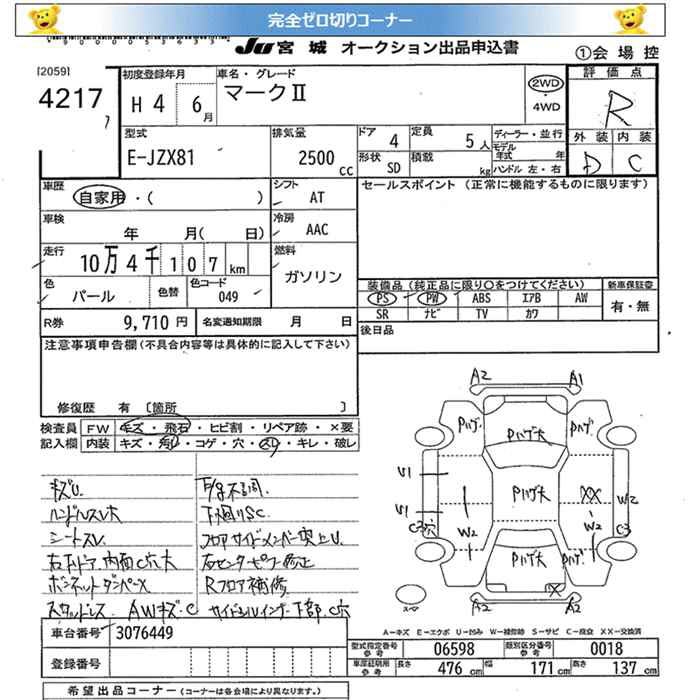 完全ゼロ切りコーナー
JU 宮城 オークション出品申込書
①会場控
[2059]
4217
初度登録年月 H4 6月
車名・グレード マークⅡ
2WD ・ 4WD
評価点 R
型式 E-JZX81
排気量 2500 cc
ドア 4
定員 5人
形状 SD
積載 kg
ディーラー・並行
モデル年式 年
ハンドル 左・右
外装 D
内装 C
車歴 自家用・( )
シフト AT
セールスポイント (正常に機能するものに限ります)
車検 年 月( 日)
冷房 AAC
走行 10万4千107km
燃料 ガソリン
色 パール
色替
色コード 049
装備品 (純正品に限り○をつけてください)
新車保証書
PS PW ABS エアB AW
有・無
SR ナビ TV カワ
R券 9,710円
名変通知期限 月 日
後日品
注意事項申告欄 (不具合内容等は具体的に記入して下さい)
修復歴 有 [箇所 ]
検査員 FW キズ・飛石・ヒビ割・リペア跡・×要
記入欄 内装 キズ・汚れ・コゲ・穴・スレ・キレ・破レ
キズU.
シートスレ
右下ドア内面C穴大
ボンネットダンパーX
スタッドレス AWキズ.C
下廻りSC.
フロアサイドメンバー突上U.
右センターピラー修正
Rフロア補修
サイドシルインナー下部.C穴
A2 A1
Pハゲ Pハゲ大 Pハゲ
U1 Pハゲ大 XX W2
U1 W2 W2
C3穴 C3
Pハゲ大 Pハゲ
X
A2 A2
スペア
A-キズ E-エクボ U-凹み W-補修跡 S-サビ C-腐食 XX-交換済
車台番号 3076449
型式指定番号参考 06598
類別区分番号参考 0018
登録番号
車庫証明用参考 長さ 476 cm 幅 171 cm 高さ 137 cm
希望出品コーナー (コーナーは各会場により異なります。)